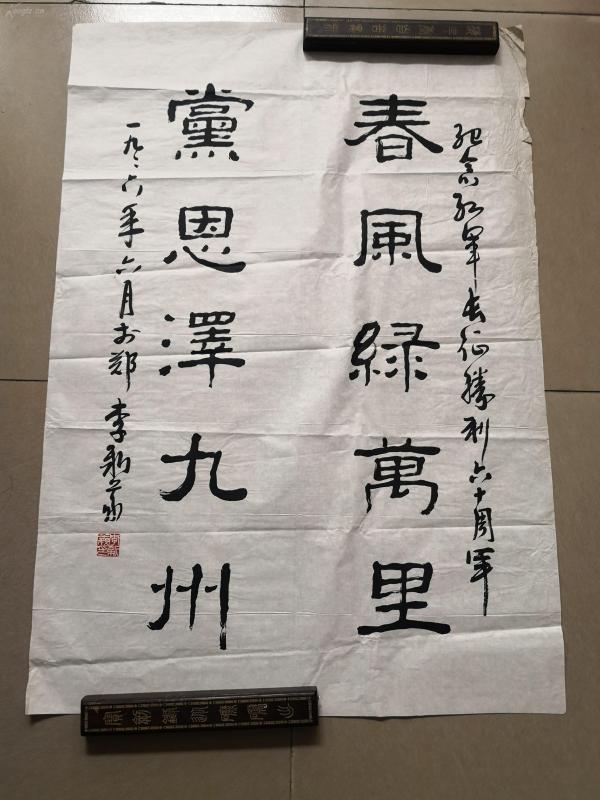 纪念红军长征勝利六十周年
春風緑萬里
黨恩澤九州
一九〻六年六月於郑 李新